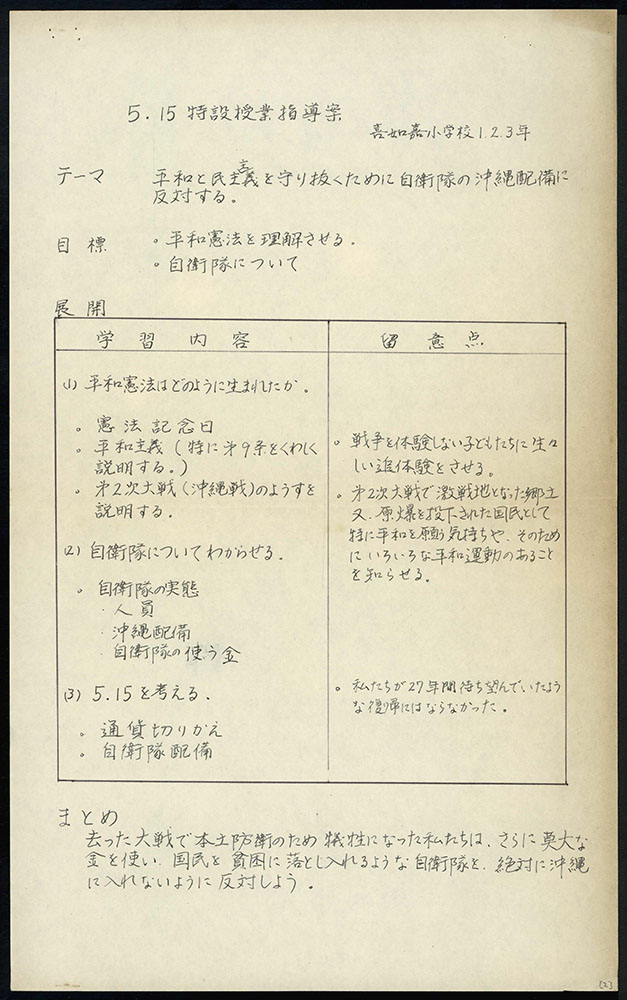 5.15 特設授業指導案
喜如嘉小学校1.2.3年
テーマ 平和と民主主義を守り抜くために自衛隊の沖縄配備に
反対する。
目標 。平和憲法を理解させる.
。自衛隊について
展開
学習内容 留意点
(1) 平和憲法はどのように生まれたか.
。憲法記念日
。平和主義(特に第9条をくわしく
説明する。)
。第2次大戦(沖縄戦)のようすを
説明する.
(2) 自衛隊についてわからせる.
。自衛隊の実態
・人員
・沖縄配備
・自衛隊の使う金
(3) 5.15を考える.
。通貨切りかえ
。自衛隊配備
。戦争を体験しない子どもたちに生々
しい追体験をさせる。
。第2次大戦で激戦地となった郷土
又、原爆を投下された国民として
特に平和を願う気持ちや、そのため
にいろいろな平和運動のあること
を知らせる.
。私たちが27年間待ち望んでいたよう
な復帰にはならなかった.
まとめ
去った大戦で本土防衛のため犠牲になった私たちは、さらに莫大な
金を使い、国民を貧困に落とし入れるような自衛隊を、絶対に沖縄
に入れないように反対しよう.
[2]